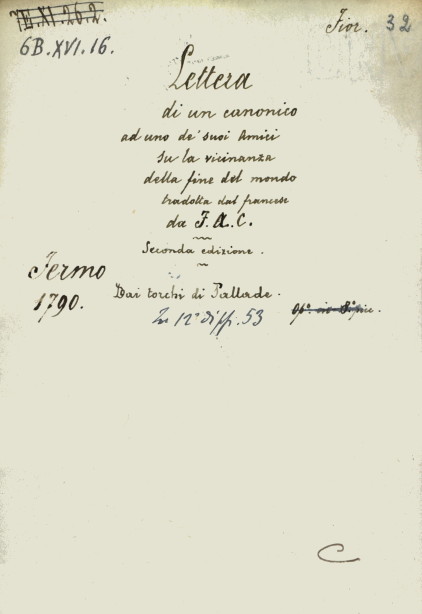 E.XI.26.2.
6B.XVI.16.
Fior. 32
Lettera
di un canonico
ad uno de' suoi Amici
su la vicinanza
della fine del mondo
tradotta dal francese
da F.A.C.
Seconda edizione.
Fermo
1790.
Dai torchi di Pallade.
In 12° di pp. 53
C